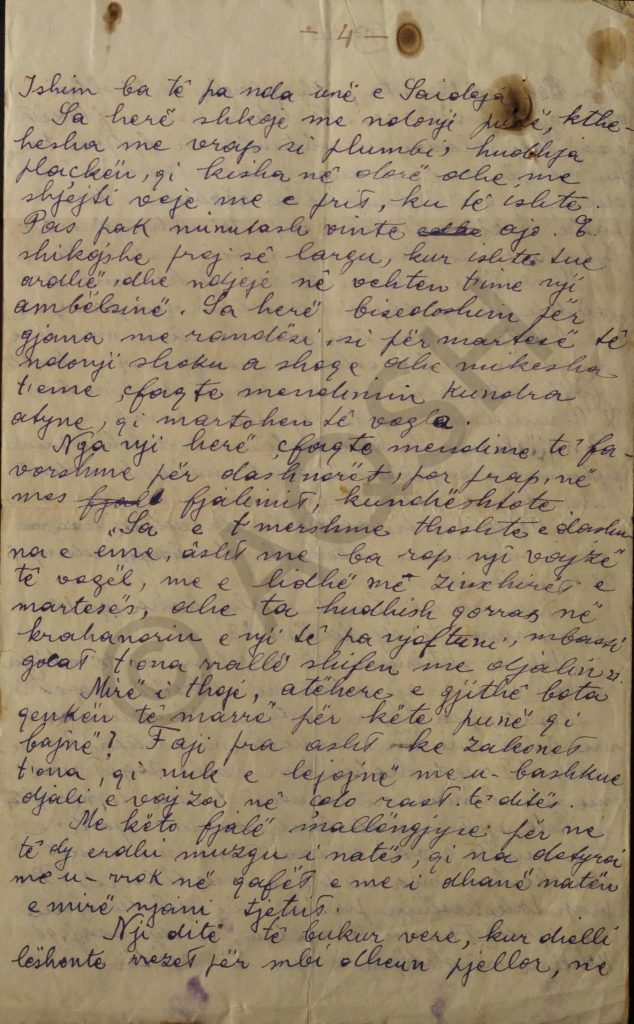 - 4 -
Ishim ba të pa nda unë e Saideja.
Sa herë shkoje me ndonji punë, kthe-
hesha me vrap si plumbi, hudhja
plaçkën, qi kisha në dorë dhe me
shpejti veje me e prit, ku të ishte.
Pas pak minutash vinte edhe ajo. E
shikojshe prej së largu, kur ishte tue
ardhë, dhe ndjeje në vehten t'ime nji
ambëlsinë. Sa herë bisedoshim për
gjana me randësi, si për martesë të
ndonji shoku a shoqe dhe mikesha
t'eme çfaqte mendimin kundra
atyne, qi martohen të vogla.
Nga nji herë çfaqte mendime të fa-
vorshme për dashnorët, por prap, në
mes fjal fjalimit, kundështote.
„Sa e t'mershme thoshte e dashu-
na e eme, âsht me ba rop nji vajzë
të vogël, me e lidhë më zinxhirët e
martesës, dhe ta hudhish gorras në
krahanorin e nji të pa njoftuni, mbassi
gocat t'ona rrallë shifen me djalin".
Mirë i thoje, atëhere e gjithë bota
qenkën të marrë për këte punë qi
bajnë? Faji pra asht ke zakonet
t'ona, qi nuk e lejojnë me u-bashkue
djali e vajza në çdo rast të ditës.
Me këto fjalë mallëngjyse për ne
të dy erdhi muzgu i natës, qi na detyroi
me u-rrok në qafët e me i dhanë natën
e mirë njani tjetrit.
Nji ditë të bukur vere, kur dielli
lëshonte rrezet për mbi dheun pjellor, ne
© AQSH